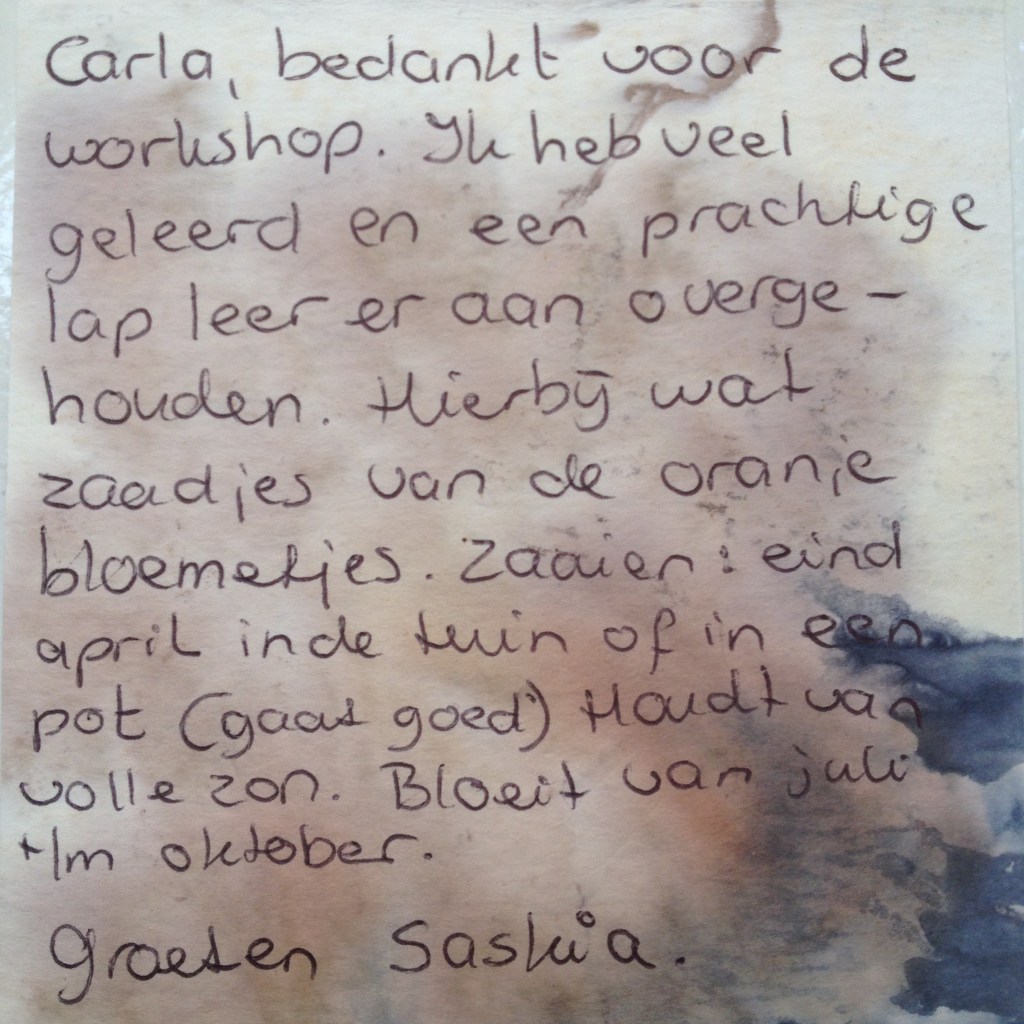 Carla, bedankt voor de
workshop. Ik heb veel
geleerd en een prachtige
lap leer er aan overge-
houden. Hierbij wat
zaadjes van de oranje
bloemetjes. Zaaien: eind
april in de tuin of in een
pot (gaat goed) Houdt van
volle zon. Bloeit van juli
t/m oktober.
Groeten Saskia.